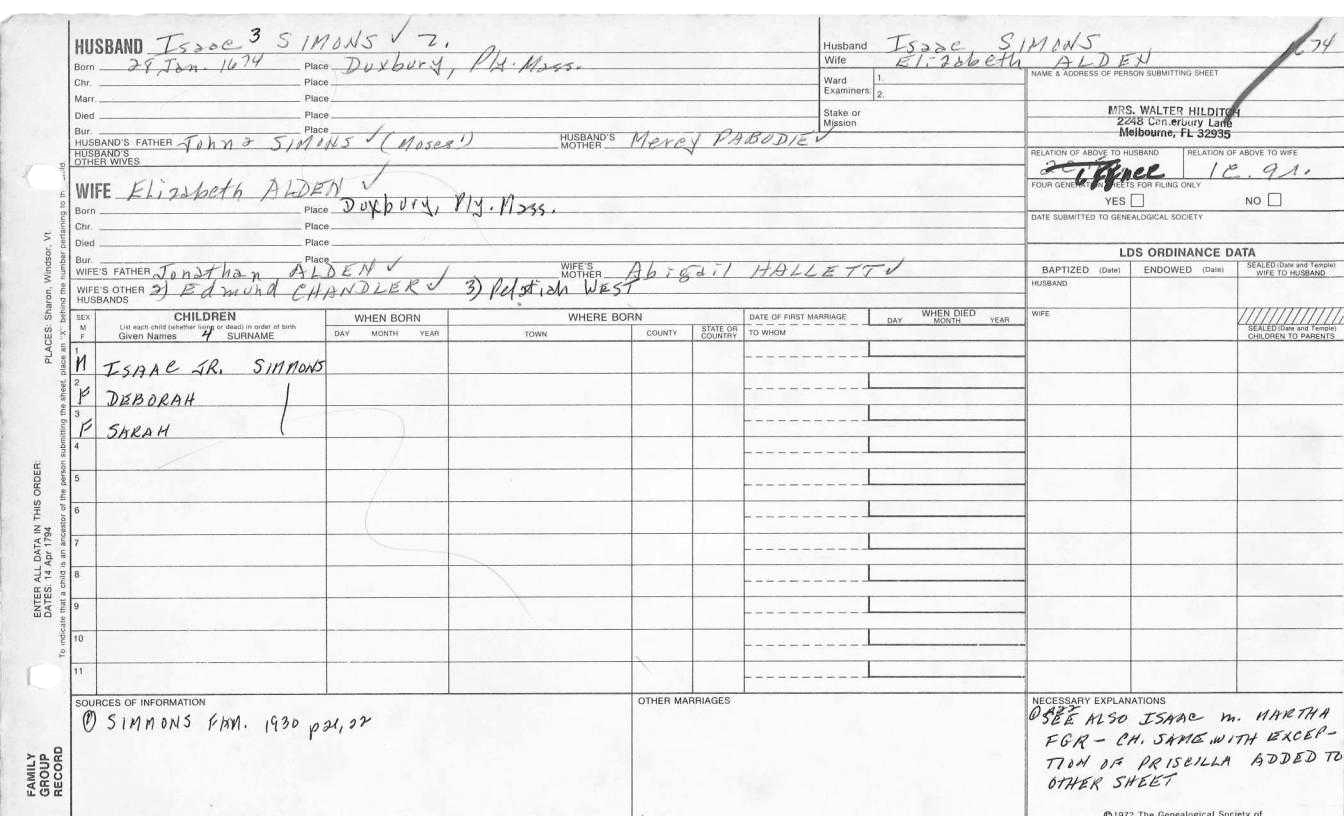 HUSBAND Isaac 3 SIMONS ✓ 2.
Born 28 Jan. 1674 Place Duxbury, Ply. Mass.
Chr. Place
Marr. Place
Died Place
Bur. Place
HUSBAND'S FATHER John 2 SIMONS ✓ (Moses 1) HUSBAND'S MOTHER Mercy PABODIE ✓
HUSBAND'S OTHER WIVES
WIFE Elizabeth ALDEN ✓
Born Place Duxbury, Ply. Mass.
Chr. Place
Died Place
Bur. Place
WIFE'S FATHER Jonathan ALDEN ✓ WIFE'S MOTHER Abigail HALLETT ✓
WIFE'S OTHER HUSBANDS 2) Edmund CHANDLER ✓ 3) Pelatiah WEST
Husband Isaac SIMONS 1674
Wife Elizabeth ALDEN
Ward Examiners: 1.
2.
Stake or Mission
NAME & ADDRESS OF PERSON SUBMITTING SHEET
MRS. WALTER HILDITCH
2248 Canterbury Lane
Melbourne, FL 32935
RELATION OF ABOVE TO HUSBAND RELATION OF ABOVE TO WIFE
FOUR GENERATION SHEETS FOR FILING ONLY
YES NO
DATE SUBMITTED TO GENEALOGICAL SOCIETY
LDS ORDINANCE DATA
BAPTIZED (Date) ENDOWED (Date) SEALED (Date and Temple) WIFE TO HUSBAND
HUSBAND
WIFE
SEALED (Date and Temple) CHILDREN TO PARENTS
SEX M F CHILDREN WHEN BORN WHERE BORN DATE OF FIRST MARRIAGE WHEN DIED
List each child (whether living or dead) in order of birth
Given Names 4 SURNAME DAY MONTH YEAR TOWN COUNTY STATE OR COUNTRY TO WHOM DAY MONTH YEAR
1 M ISAAC JR. SIMMONS
2 F DEBORAH
3 F SARAH
4
5
6
7
8
9
10
11
SOURCES OF INFORMATION
SIMMONS FAM. 1930 p21,22
OTHER MARRIAGES
NECESSARY EXPLANATIONS
SEE ALSO ISAAC m. MARTHA
FGR - CH. SAME WITH EXCEP-
TION OF PRISCILLA ADDED TO
OTHER SHEET
©1972 The Genealogical Society of
PLACES: Sharon, Windsor, Vt
ENTER ALL DATA IN THIS ORDER:
DATES: 14 Apr 1794
To indicate that a child is an ancestor of the person submitting the sheet, place an "X" behind the number pertaining to
FAMILY
GROUP
RECORD